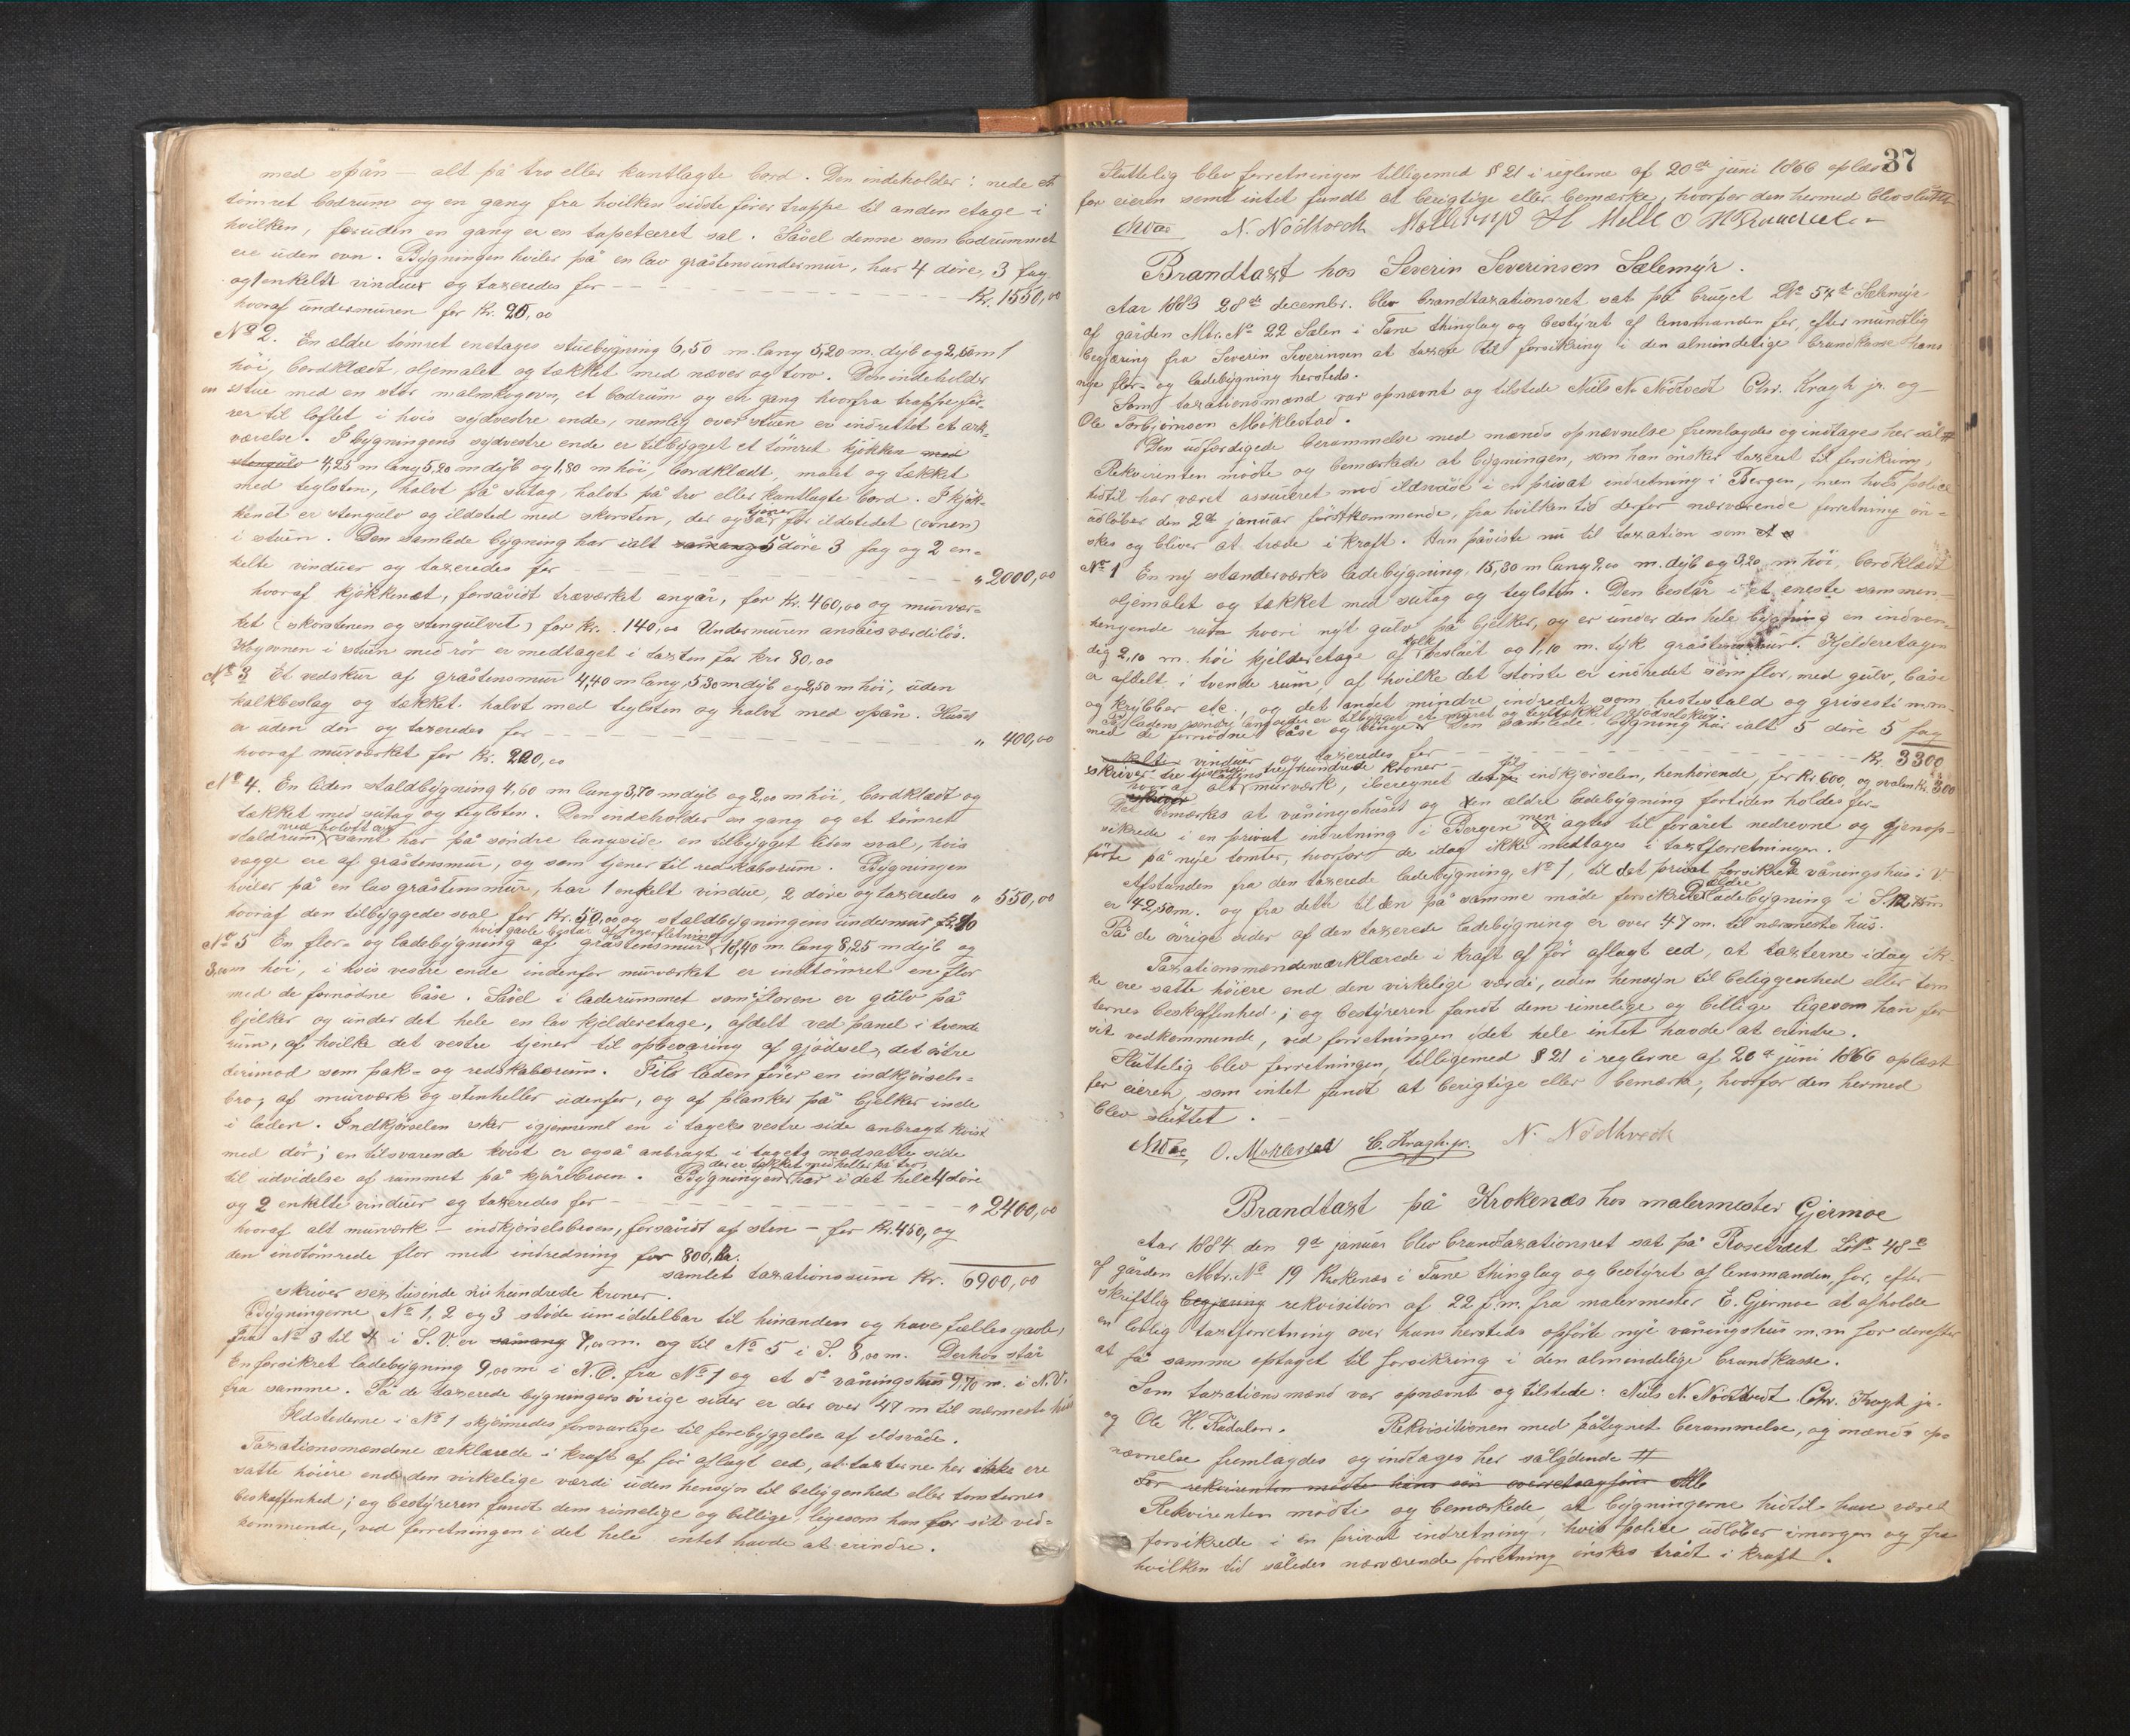 med spån – alt på tro eller kantlagte bord. Den indeholder: nede et
tömret bodrum og en gang fra hvilken sidste förer trappe til anden etage – i
hvilken, foruden en gang er en tapetseret sal. Såvel denne som bodrummet
ere uden ovn. Bygningen hviler på en lav gråstensundermur, har 4 döre, 3 fag
og 1 enkelt vinduer og taxeredes for Kr. 1550,00
hvoraf undermuren for Kr. 20,00
No 2. En ældre tömret enetages stuebygning 6,50 m lang 5,20 m. dyb og 2,50 m
höi, bordklædt, oljemalet og tækket med næver og torv. Den indeholder
en stue med en stor malmkogovn, et bodrum og en gang hvorfra trappe fö-
rer til loftet i hvis sydvestre ende, nemlig over stuen er indrettet et ark-
værelse. I bygningens sydvestre ende er tilbygget et tömret kjökken med
stengulv 4,25 m lang 5,20 m dyb og 1,80 m höi, bordklædt, malet og tækket
med teglsten, halvt på sutag, halvt på tro eller kantlagte bord. I kjök-
kenet er stengulv og ildsted med skorsten, der også tjener for ildstedet (ovnen)
i stuen. Den samlede bygning har ialt 5 döre 3 fag og 2 en-
kelte vinduer og taxeredes for " 2000,00
hvoraf kjökkenet, forsåvidt træværket angår, for Kr. 460,00 og murvær-
ket (skorstenen og stengulvet) for Kr. 140,00 Undermuren ansåes værdilös.
Kogovnen i stuen med rör er medtaget i taxten for Kr. 80,00
No 3 Et vedskur af gråstensmur 4,40 m lang, 5,30 m dyb og 2,50 m höi, uden
kalkbeslag og tækket halvt med teglsten og halvt med spån. Huset
er uden dör og taxeredes for " 400,00
hvoraf murværket for Kr. 220,00
No 4. En liden staldbygning 4,60 m lang 3,70 m dyb og 2,00 m höi, bordklædt og
tækket med sutag og teglsten. Den indeholder en gang og et tömret
staldrum med höloft og samt har på söndre langside en tilbygget liden sval, hvis
vægge ere af gråstensmur, og som tjener til redskabsrum. Bygningen
hviler på en lav gråstensmur, har 1 enkelt vindue, 2 döre og taxeredes " 550,00
hvoraf den tilbyggede sval for Kr. 50,00 og staldbygningens undermur
No 5 En flor- og ladebygning af gråstensmur hvis gavle består af 16,40 m lang 8,25 m dyb og
3,00 m höi, i hvis vestre ende indenfor murværket er indtömret en flor
med de fornödne båse. Såvel i laderummet som i floren er gulv på
bjelker og under det hele en lav kjelderetage, afdelt ved panel i tvende
rum, af hvilke det vestre tjener til opbevaring af gjödsel, det östre
derimod som pak- og redskabsrum. Til laden förer en indkjörsels-
bro, af murværk og stenheller udenfor, og af planker på bjelker inde
i laden. Indkjörselen sker igjennem en i tagets vestre side anbragt kvist
med dör; en tilsvarende kvist er også anbragt i tagets modsatte side
til udvidelse af rummet på kjörebroen. Bygningen der er tækket med heller på tro, har i det hele 4 döre
og 2 enkelte vinduer og taxeredes for " 2400,00
hvoraf alt murværk – indkjörselsbroen, forsåvidt af sten – for Kr. 450, og
den indtömrede flor med indredning for 800, Kr.
samlet taxationssum Kr. 6900,00
skriver sex tusinde ni hundrede kroner.
Bygningerne No 1, 2 og 3 støde umiddelbar til hinanden og have fælles gavle,
fra No 3 til 4 i S.V. er 7,00 m. og til No 5 i S. 8,00 m. Derhos står
En forsikret ladebygning 9,00 m i N.Ö. fra No 1 og et do våningshus 9,70 m. i N.V.
fra samme. På de taxerede bygningers övrige sider er der over 47 m til nærmeste hus
Ildstederne i No 1 skjönnedes forsvarlige til forebyggelse af ildsvåde.
Taxationsmændene erklærede i kraft af för aflagt eed, at taxterne her ikke ere
satte höiere end den virkelige værdi uden hensyn til beligenhed eller tomternes
beskaffenhed; og bestyreren fandt dem rimelige og billige, ligesom han for sit ved-
kommende, ved forretningen i det hele intet havde at erindre.
37
Sluttelig blev forretningen tilligemed § 21 i reglerne af 20de juni 1866 oplæst
for eieren samt intet fundt at berigtige eller bemærke, hvorfor den hermed blev sluttet
N. Nödtvedt
Brandtaxt hos Severin Severinsen Sælemyr.
Aar 1883 28de decembr. blev brandtaxationsret sat på bruget
af gården Mtr. No 22 Sælen i Fane thinglag og bestyret af lensmanden for, efter mundtlig
begjæring fra Severin Severinsen at taxere til forsikring i den almindelige brandkasse hans
nye flor- og ladebygning hersteds.
Som taxationsmænd var opnævnt og tilstede Niels N. Nödtvedt Chr. Kragh jr. og
Ole Torbjörnsen Möklestad.
Den udfærdigede berammelse med mænds opnævnelse fremlagdes og indtages her sål. #
Rekvirenten mödte og bemærkede at bygningen, som han önsker taxeret til forsikring,
hidtil har været assureret mod ildsvåde i en privat indretning i Bergen, men hvis police
udlöber den 2de januar förstkommende, fra hvilken tid derfor nærværende forretning ön-
skes og bliver at træde i kraft. Han påviste nu til taxation som
No 1 En ny standerværks ladebygning, 15,30 m lang 9,00 m. dyb og 3,20 m höi, bordklædt
oljemalet og tækket med sutag og teglsten. Den består i et eneste sammen-
hengende rum hvori nyt gulv på bjelker, og er under den hele bygning en indven-
dig 2,10 m. höi kjelderetage af kalkbeslået og 1,10 m. tyk gråstensmur. Kjelderetagen
er afdelt i tvende rum, af hvilke det störste er indredet som flor, med gulv, båse
og krybber etc., og det andet mindre indredet som hestestald og grisesti m.m.
På ladens söndre langside er tilbygget et muret og tegltækket gjödselskur.
med de fornödne båse og binger. Den samlede bygning har ialt 5 döre 5 fag
vinduer og taxeredes for Kr. 3300
skriver tre tusinde trehundrede kroner
hvoraf alt murværk, iberegnet det til indkjörselen, henhörende, for Kr 600, og svalen Kr. 300
Det bemærkes at våningshuset og den ældre ladebygning fortiden holdes for-
sikrede i en privat indretning i Bergen men agtes til foråret nedrevne og gjenop-
förte på nye tomter, hvorfor de idag ikke medtages i taxtforretningen.
Afstanden fra den taxerede ladebygning No 1, til det privat forsikrede våningshus i V
er 42,50 m. og fra dette til den på samme måde forsikrede ældre ladebygning i S.
På de övrige sider af den taxerede ladebygning er over 47 m. til nærmeste hus.
Taxationsmændene erklærede i kraft af för aflagt eed, at taxterne idag ik-
ke ere satte höiere end den virkelige værdi, uden hensyn til beliggenhed eller tom
ternes beskaffenhed; og bestyreren fandt dem rimelige og billige ligesom han for
sit vedkommende, ved forretningen i det hele intet havde at erindre.
Sluttelig blev forretningen, tilligemed § 21 i reglerne af 20de juni 1866 oplæst
for eieren, som intet fandt at berigtige eller bemærke, hvorfor den hermed
blev sluttet.
O. Möklestad C. Kragh jr. N. Nödtvedt
Brandtaxt på Krokenæs hos malermester Gjermoe
Aar 1884 den 9de januar blev brandtaxationsret sat på Rosetrdet LNo 48e
af gården Mtr. No 19 Krokenæs i Fane thinglag og bestyret af lensmanden, for, efter
skriftlig begjæring rekvisition af 22 f.m. fra malermester E. Gjermoe at afholde
en lovlig taxtforretning over hans hersteds opförte nye våningshus m.m for derefter
at få samme optaget til forsikring i den almindelige brandkasse.
Som taxationsmænd var opnævnt og tilstede: Niels N. Nödtvedt Chr. Kragh jr.
og Ole H. Rådalen. Rekvisitionen med påtegnet berammelse, og mænds op-
nævnelse fremlagdes og indtages her sålydende #
For rekvirenten mödte hans sön overretssagförer
Rekvirenten mödte og bemærkede, at bygningerne hidtil have været
forsikrede i en privat indretning, hvis police udlöber imorgen og fra
hvilken tid således nærværende forretning önskes trådt i kraft.